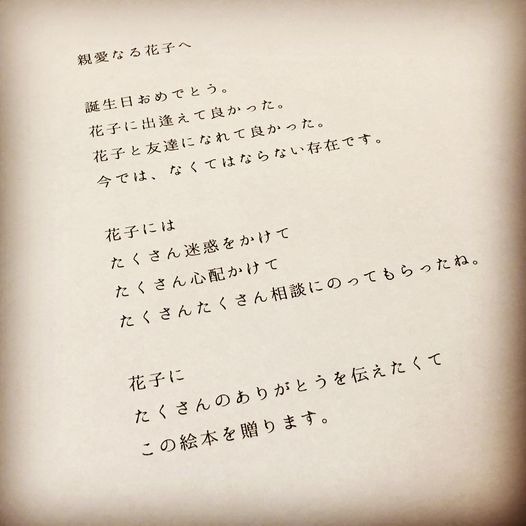 親愛なる花子へ
誕生日おめでとう。
花子に出逢えて良かった。
花子と友達になれて良かった。
今では、なくてはならない存在です。
花子には
たくさん迷惑をかけて
たくさん心配かけて
たくさんたくさん相談にのってもらったね。
花子に
たくさんのありがとうを伝えたくて
この絵本を贈ります。